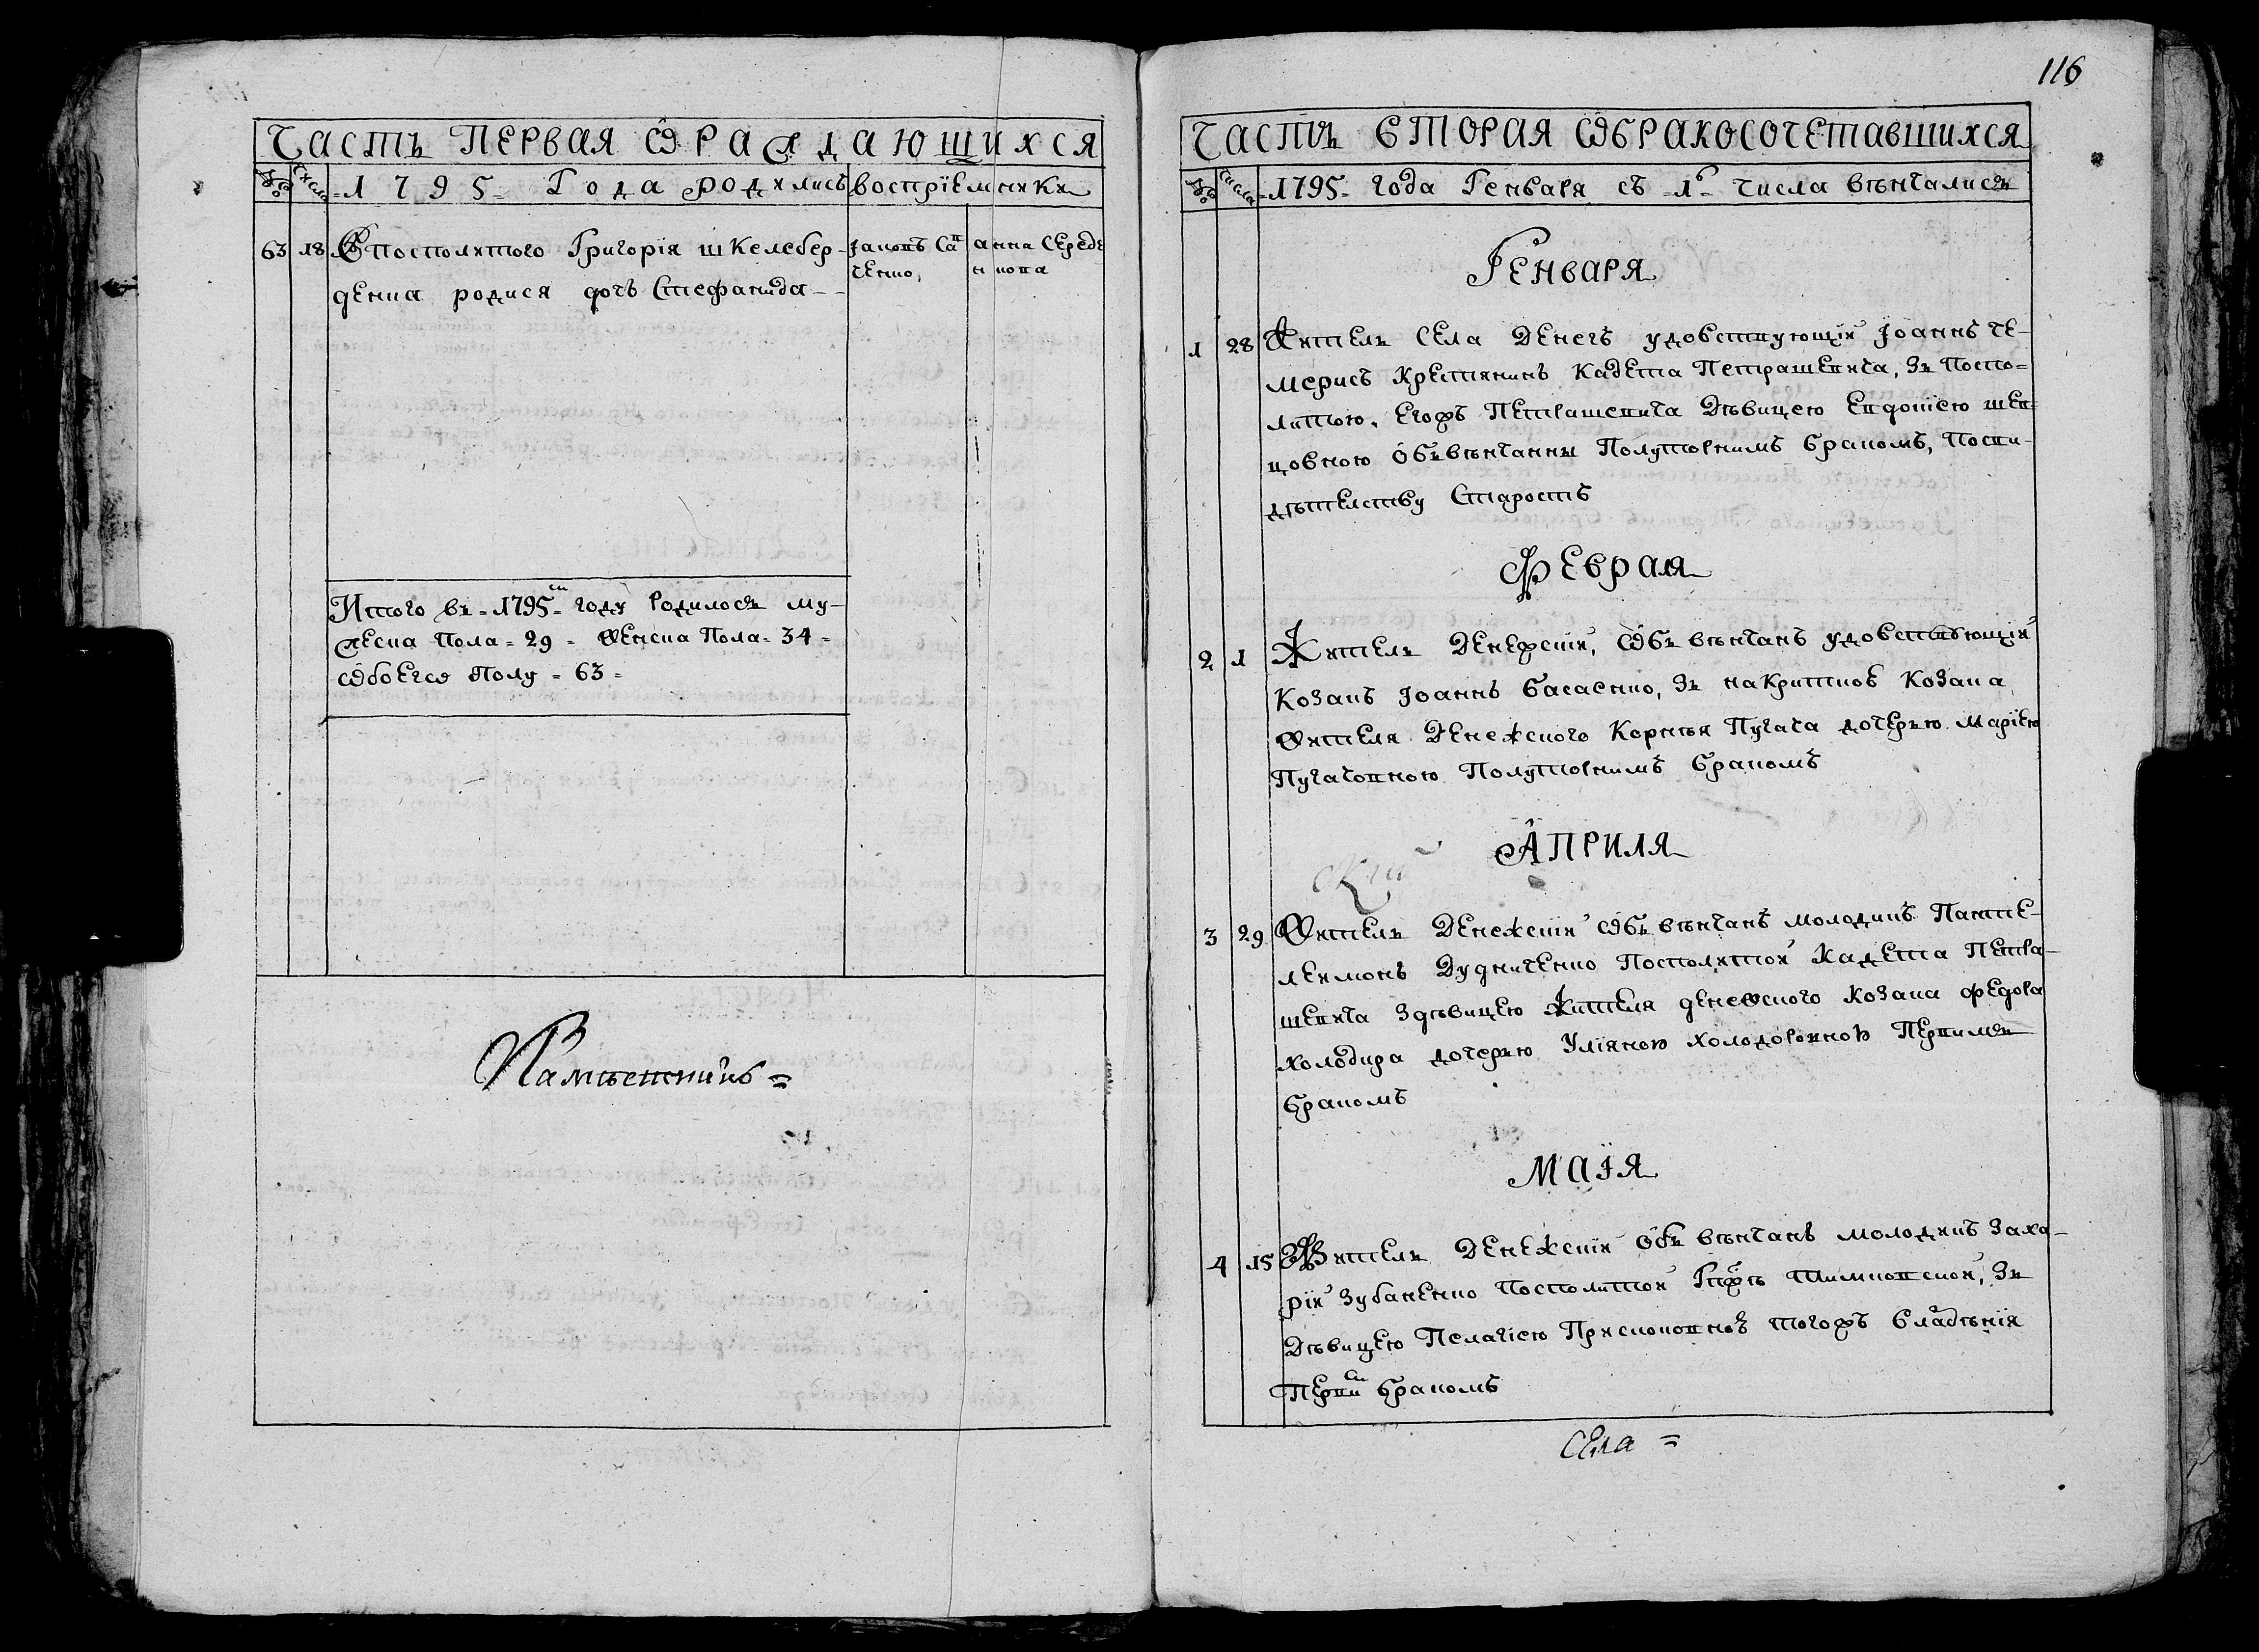 116
Часть первая ѿ раждающихся
№ числа =1795= Года родились воспрїемники
63 18 Впосполитого Григорїя шкелебер-
денка родися дочь Стефанида--
Іаковъ Сап
ченко,
анна Середе
нкова
Итого въ =1795= году родилось му-
жеска пола = 29 = женска Пола = 34 =
ѡбоего Полу = 63 =
Часть вторая ѡбракосочетавшихся
№ числа =1795= года Генваря съ =1го= числа вѣнчались
Генваря
1 28 Житель Села Денегъ удовствующїй Іоаннъ че-
мерисъ крестянинъ Кадета Петрашевича, зъ Поспо=
литою, Егожъ Петрашевича Дѣвицею Евдокіею шев-
цовною Объвѣнчанны Полуторнимъ бракомъ, Посви-
дѣтелству Старостъ
Февраля
2 1 Житель Денежскій, ѡбъвѣнчанъ удовствующїй
Козакъ Іоаннъ басаенко, зъ накриткоѣ козака
жителя Денежского Корнѣя Пугача дочерью Марїею
Пугачовною Полуторнимъ бракомъ
Априля
3 29 Житель Денежскій ѡбъвѣнчанъ молодикъ Панте-
леимонъ Дудниченко Посполитой Кадета Петра-
шевича здѣвицею жителя денежского козака Федора
холодира дочерью Улїяною холодоровною Первимъ
бракомъ
Маїя
4 15 Житель Денежскїй объвѣнчанъ молодикъ Заха-
рїй Зубаненко посполитой Тимковской, зъ
Дѣвицею Пелагїею тогожъ владѣнїя
Первим бракомъ
Села =